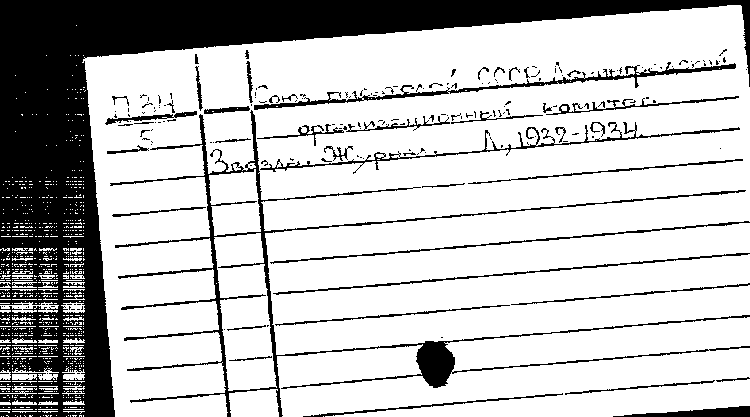 П 34
5
Союз писателей СССР. Ленинградский
организационный комитет.
Звезда. Журнал. Л., 1932-1934.